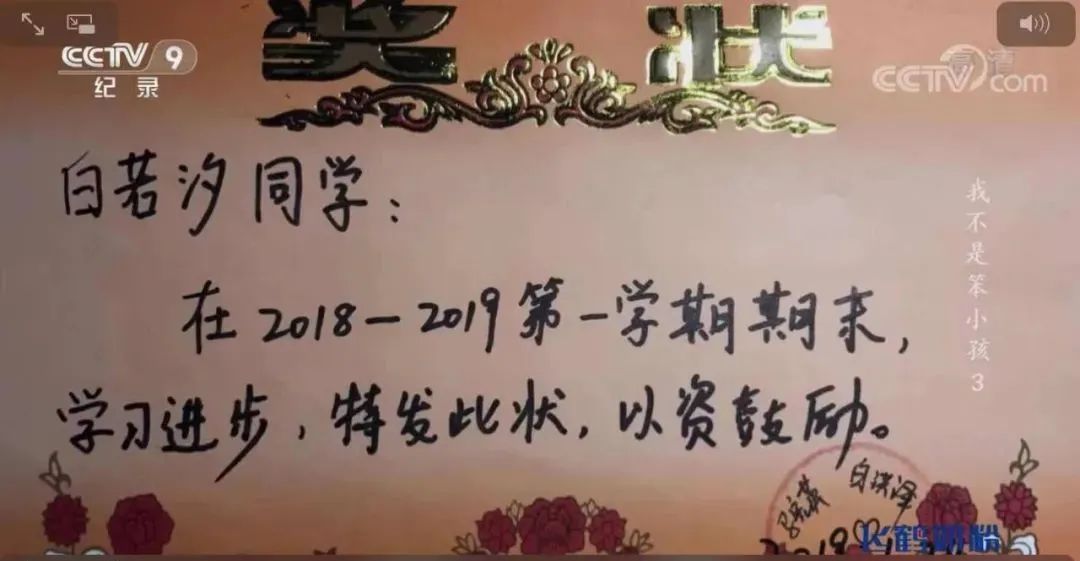 奖状
CCTV 9
纪录
CCTV.com
高清
白若汐同学：
在2018-2019第一学期期末，
学习进步，特发此状，以资鼓励。
我不是笨小孩 3
白洪泽
飞鹤奶粉